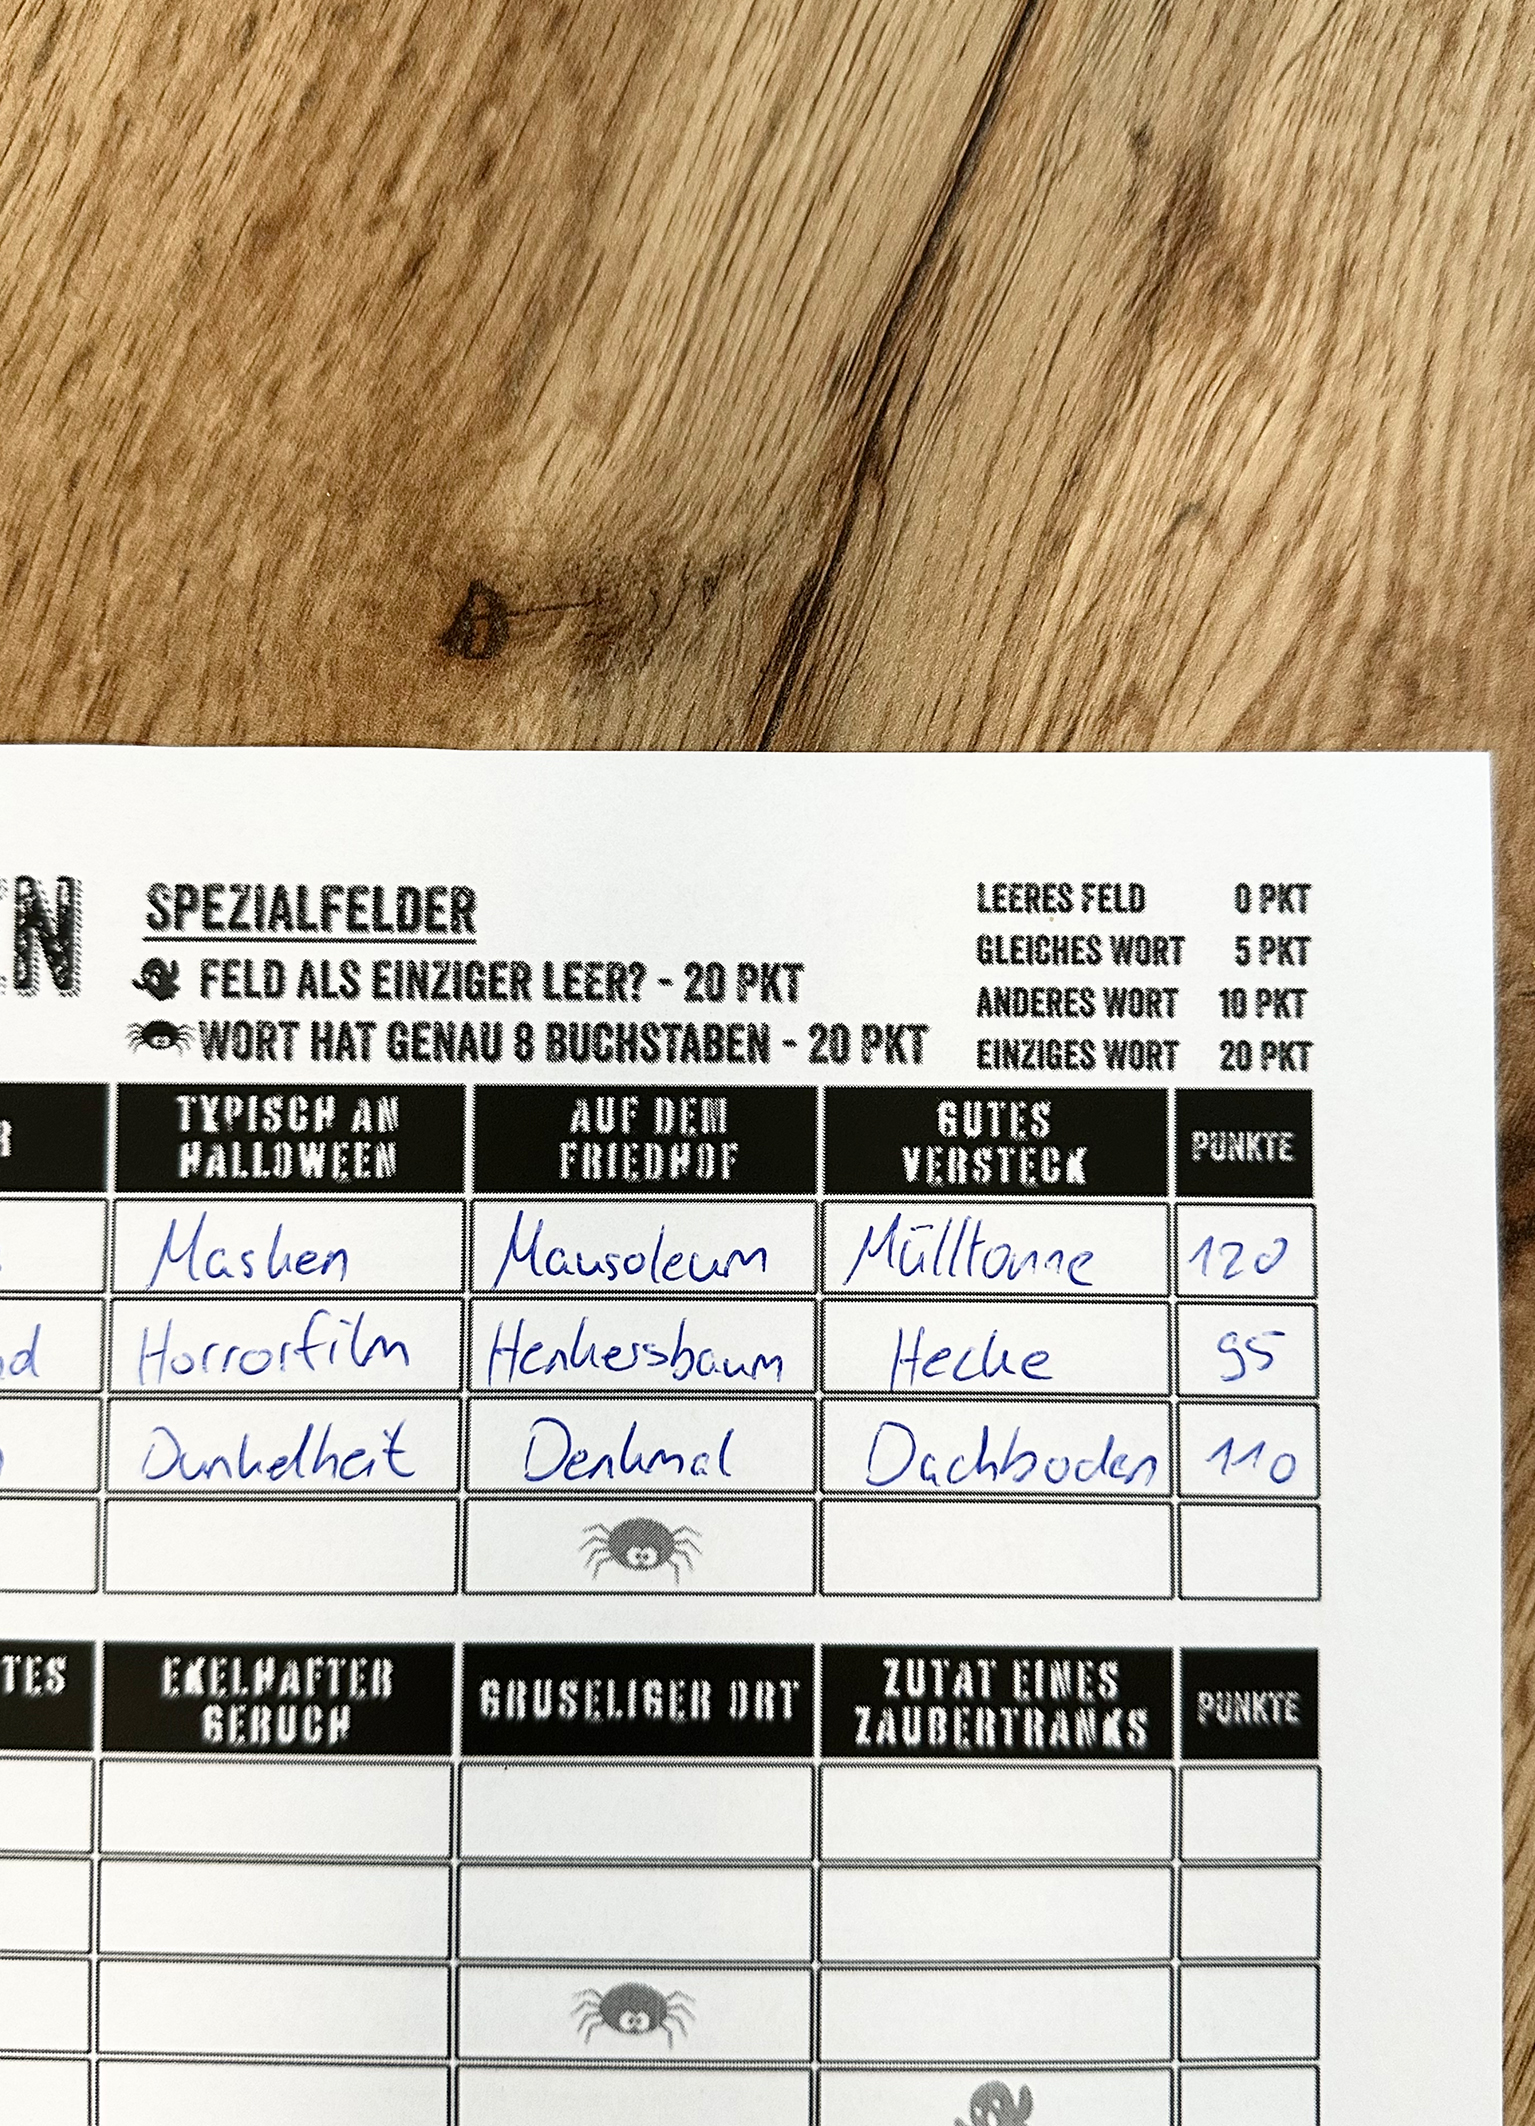 EN
SPEZIALFELDER
FELD ALS EINZIGER LEER? - 20 PKT
WORT HAT GENAU 8 BUCHSTABEN - 20 PKT
LEERES FELD 0 PKT
GLEICHES WORT 5 PKT
ANDERES WORT 10 PKT
EINZIGES WORT 20 PKT
R TYPISCH AN HALLOWEEN AUF DEM FRIEDHOF GUTES VERSTECK PUNKTE
Masken Mausoleum Mülltonne 120
nd Horrorfilm Henkersbaum Hecke 95
Dunkelheit Denkmal Dachboden 110
TES EKELHAFTER GERUCH GRUSELIGER ORT ZUTAT EINES ZAUBERTRANKS PUNKTE